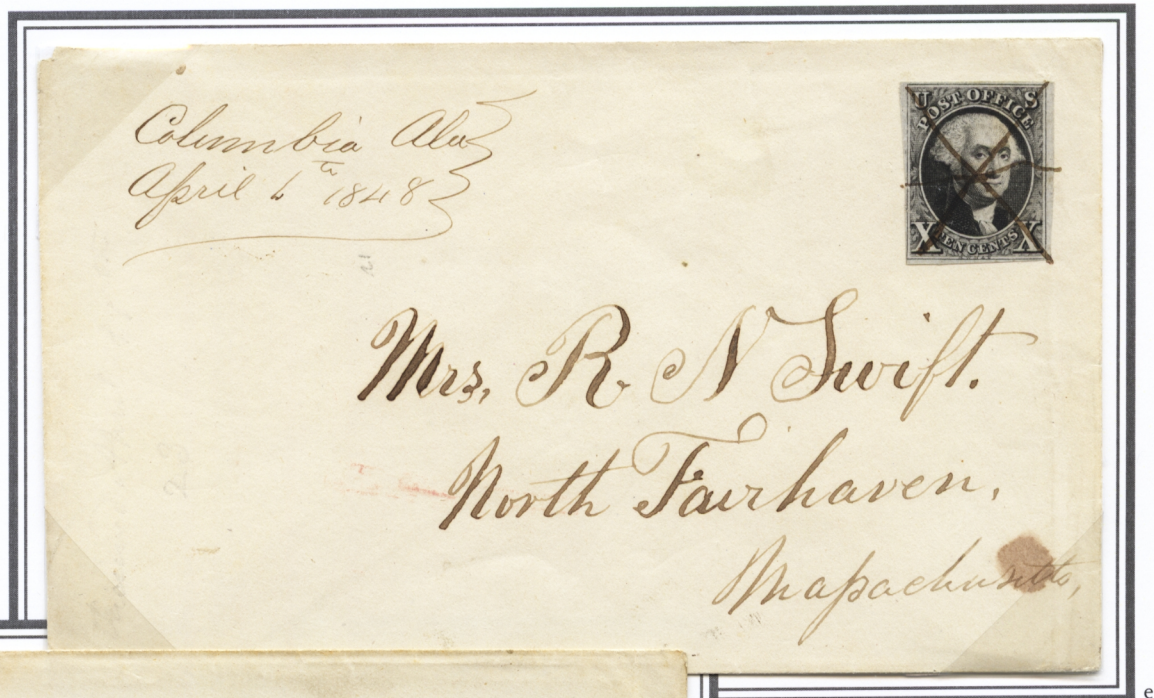 Columbia Ala
April 6th 1848
U S
POST OFFICE
X TEN CENTS X
Mrs. R. N Swift.
North Fairhaven,
Massachusetts,
e